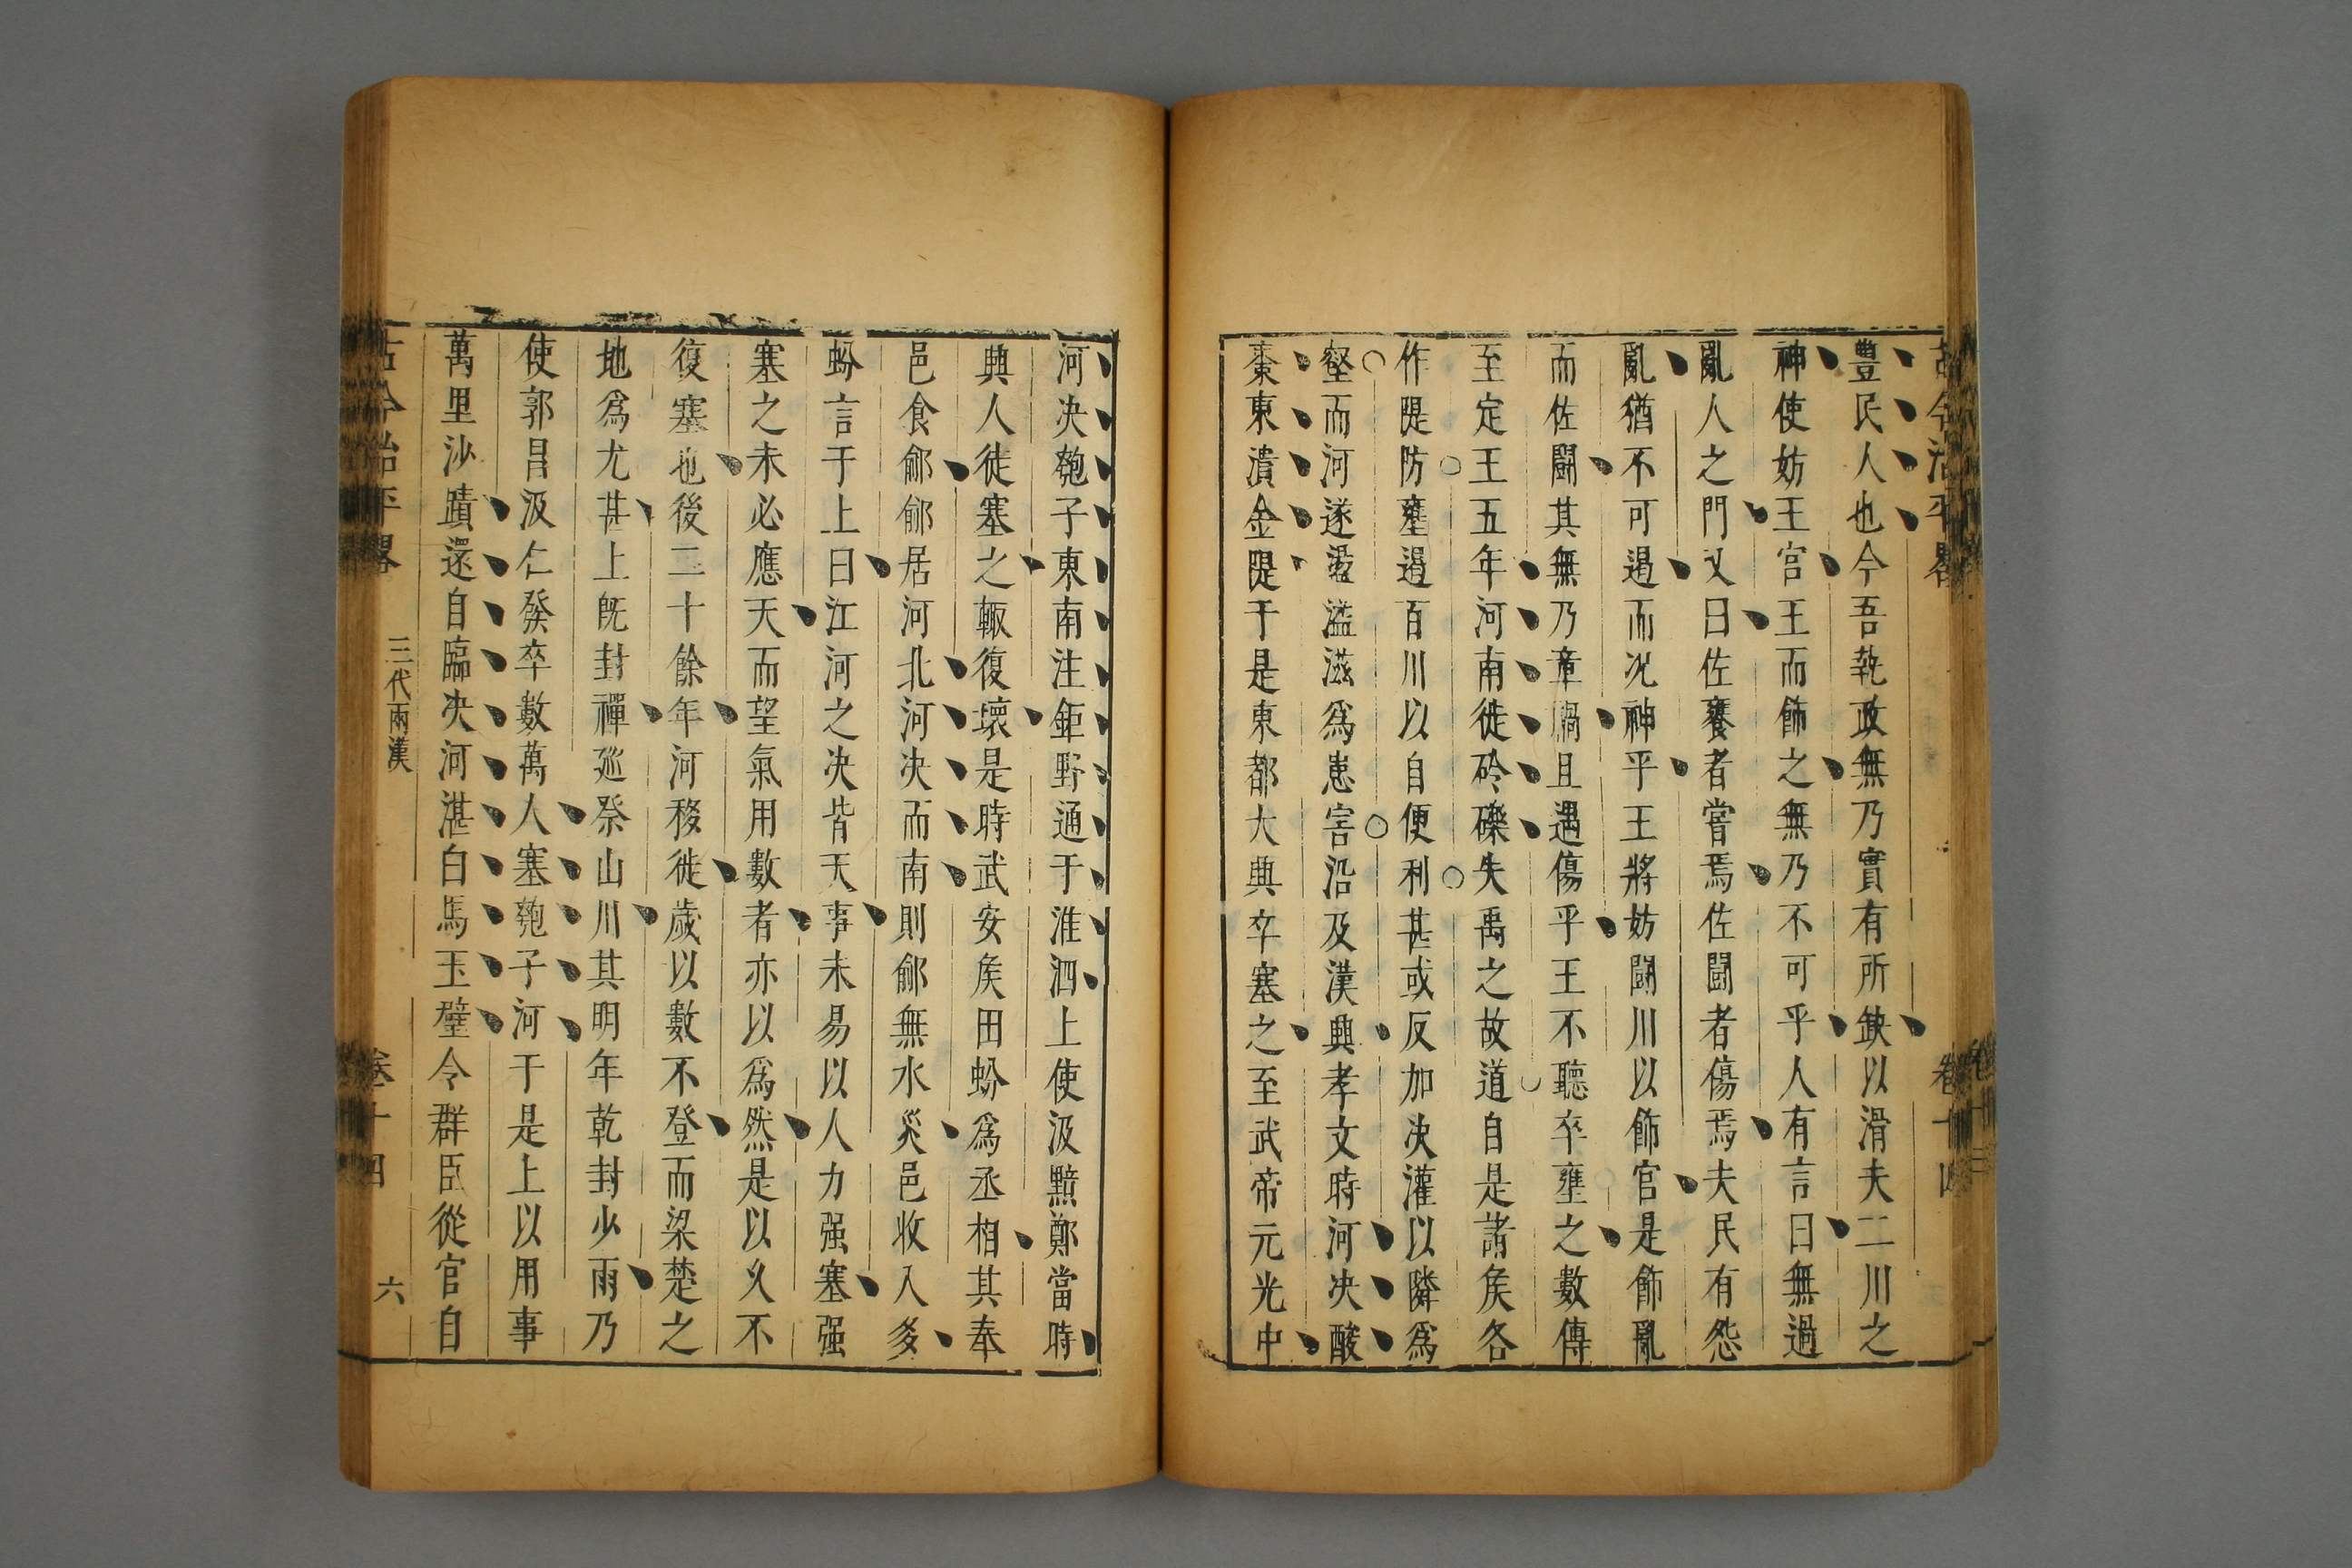 古今治平畧
卷十四
豐民人也今吾執政無乃實有所缺以滑夫二川之
神使妨王宫王而飾之無乃不可乎人有言曰無過
亂人之門又曰佐饔者嘗焉佐鬪者傷焉夫民有怨
亂猶不可遏而况神乎王將妨鬪川以飾宫是飾亂
而佐鬪其無乃章禍且遇傷乎王不聽卒壅之數傳
至定王五年河南徙砱礫失禹之故道自是諸矦各
作隄防壅遏百川以自便利甚或反加决灌以隣爲
壑而河遂濫溢滋爲患害沿及漢興孝文時河决酸
棗東潰金隄于是東都大興卒塞之至武帝元光中
河决瓠子東南注鉅野通于淮泗上使汲黯鄭當時
興人徒塞之輙復壞是時武安矦田蚡爲丞相其奉
邑食鄃鄃居河北河决而南則鄃無水災邑收入多
蚡言于上曰江河之决皆天事未易以人力强塞强
塞之未必應天而望氣用數者亦以爲然是以久不
復塞也後二十餘年河移徙歲以數不登而梁楚之
地爲尤甚上旣封禪廵祭山川其明年乾封少雨乃
使郭昌汲仁發卒數萬人塞瓠子河于是上以用事
萬里沙蹟還自臨决河湛白馬玉璧令群臣從官自
古今治平畧
三代兩漢
卷十四
六